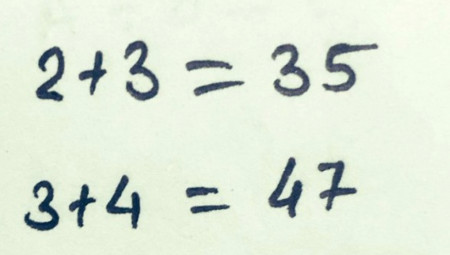 2+3 = 35
3+4 = 47